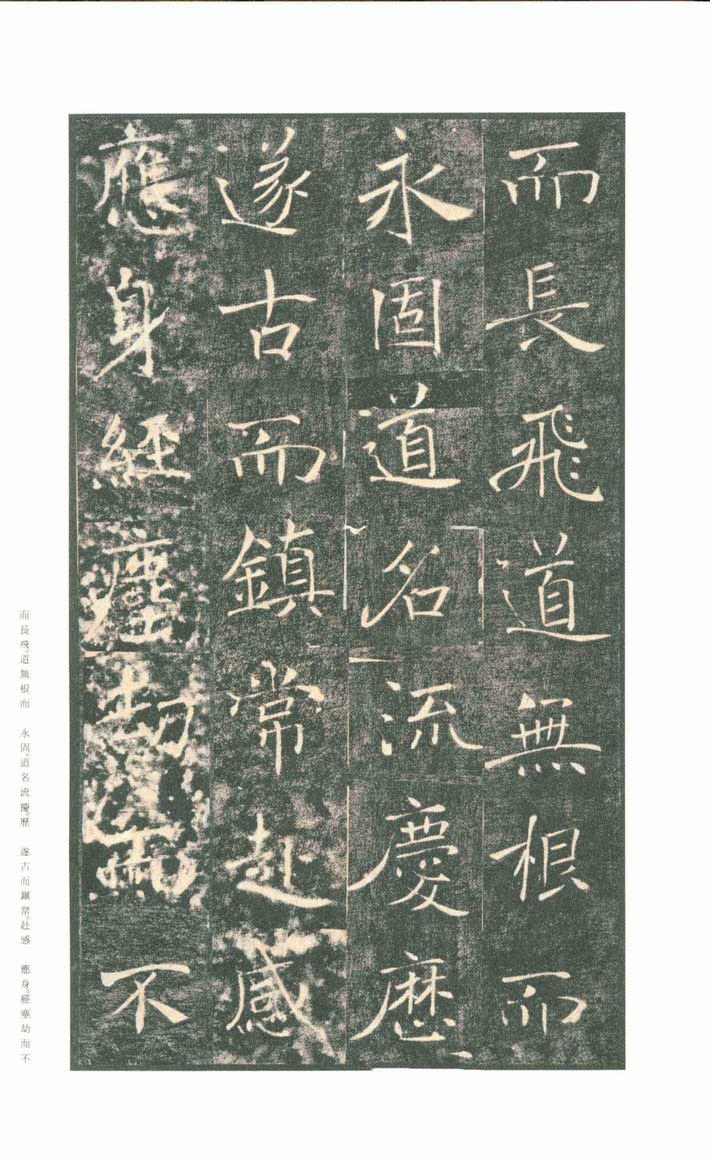 而長飛道無根而
永固道名流慶歷
遂古而鎮常赴感
應身經塵劫而不
而長飛。道無根而　永固。道名流慶。歷　遂古而鎮常。赴感　應身。經塵劫而不